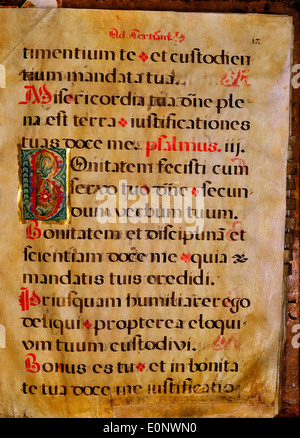 Ad Tertiam
timentium te et custodien
tium mandata tua.
Misericordia tua dñe ple
na est terra iustificationes
tuas doce me. psalmus. iij.
Bonitatem fecisti cum
servo tuo dñe secun
dum verbum tuum.
Bonitatem et disciplinã et
scientiam doce me quia
mandatis tuis credidi.
Priusquam humiliarer ego
deliqui propterea eloqui
vm tuum custodivi.
Bonus es tu et in bonita
te tua doce me iustificatio
alamy
E0NWN0